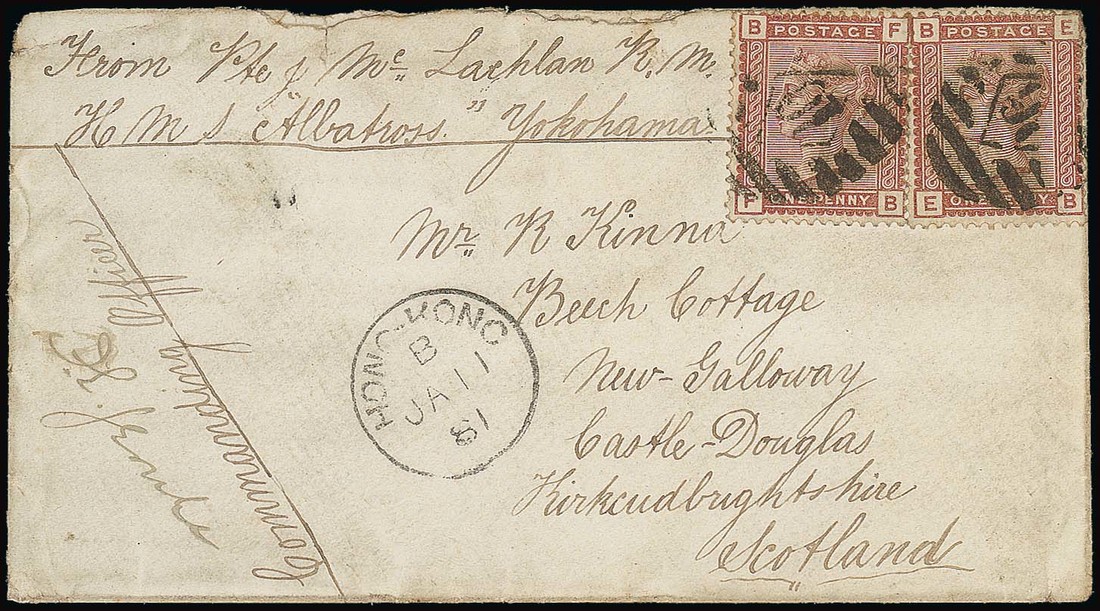 From Pte J Mc Lachlan R.M.
H M S "Albatross" Yokohama
B POSTAGE F
F ONE PENNY B
B POSTAGE E
E ONE PENNY B
Mr. R Kinna
Beech Cottage
New-Galloway
Castle-Douglas
Kirkcudbrightshire
Scotland
HONG-KONG
B
JA 11
81
Commanding Officer